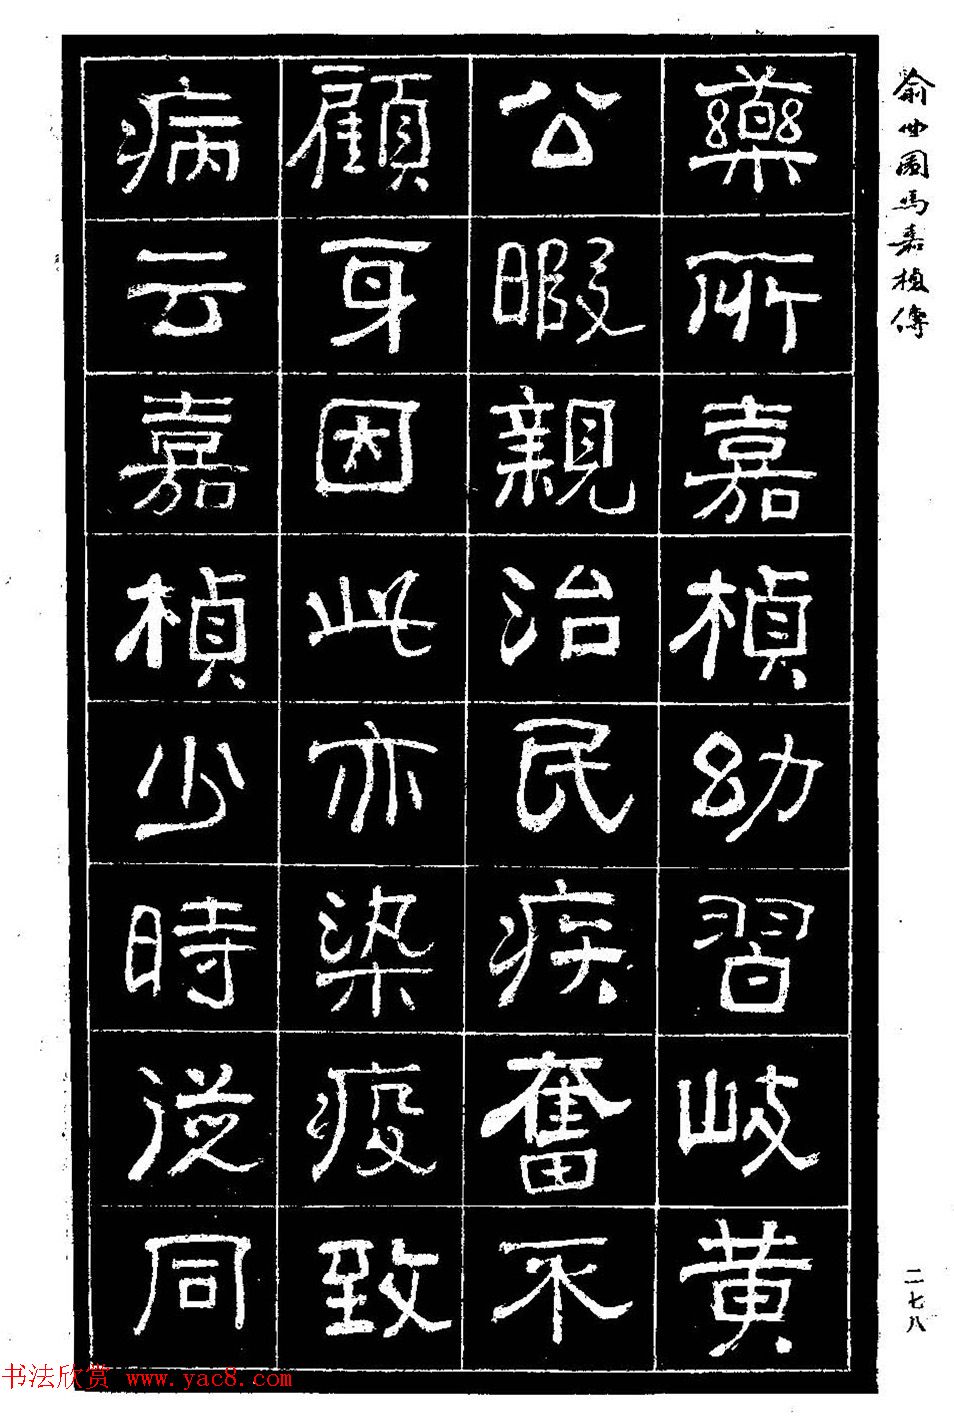 俞曲園馮嘉楨傳
藥所嘉楨幼習岐黃
公暇親治民疾奮不
顧身因此亦染疫致
病云嘉楨少時從同
二七八
书法欣赏 www.yac8.com